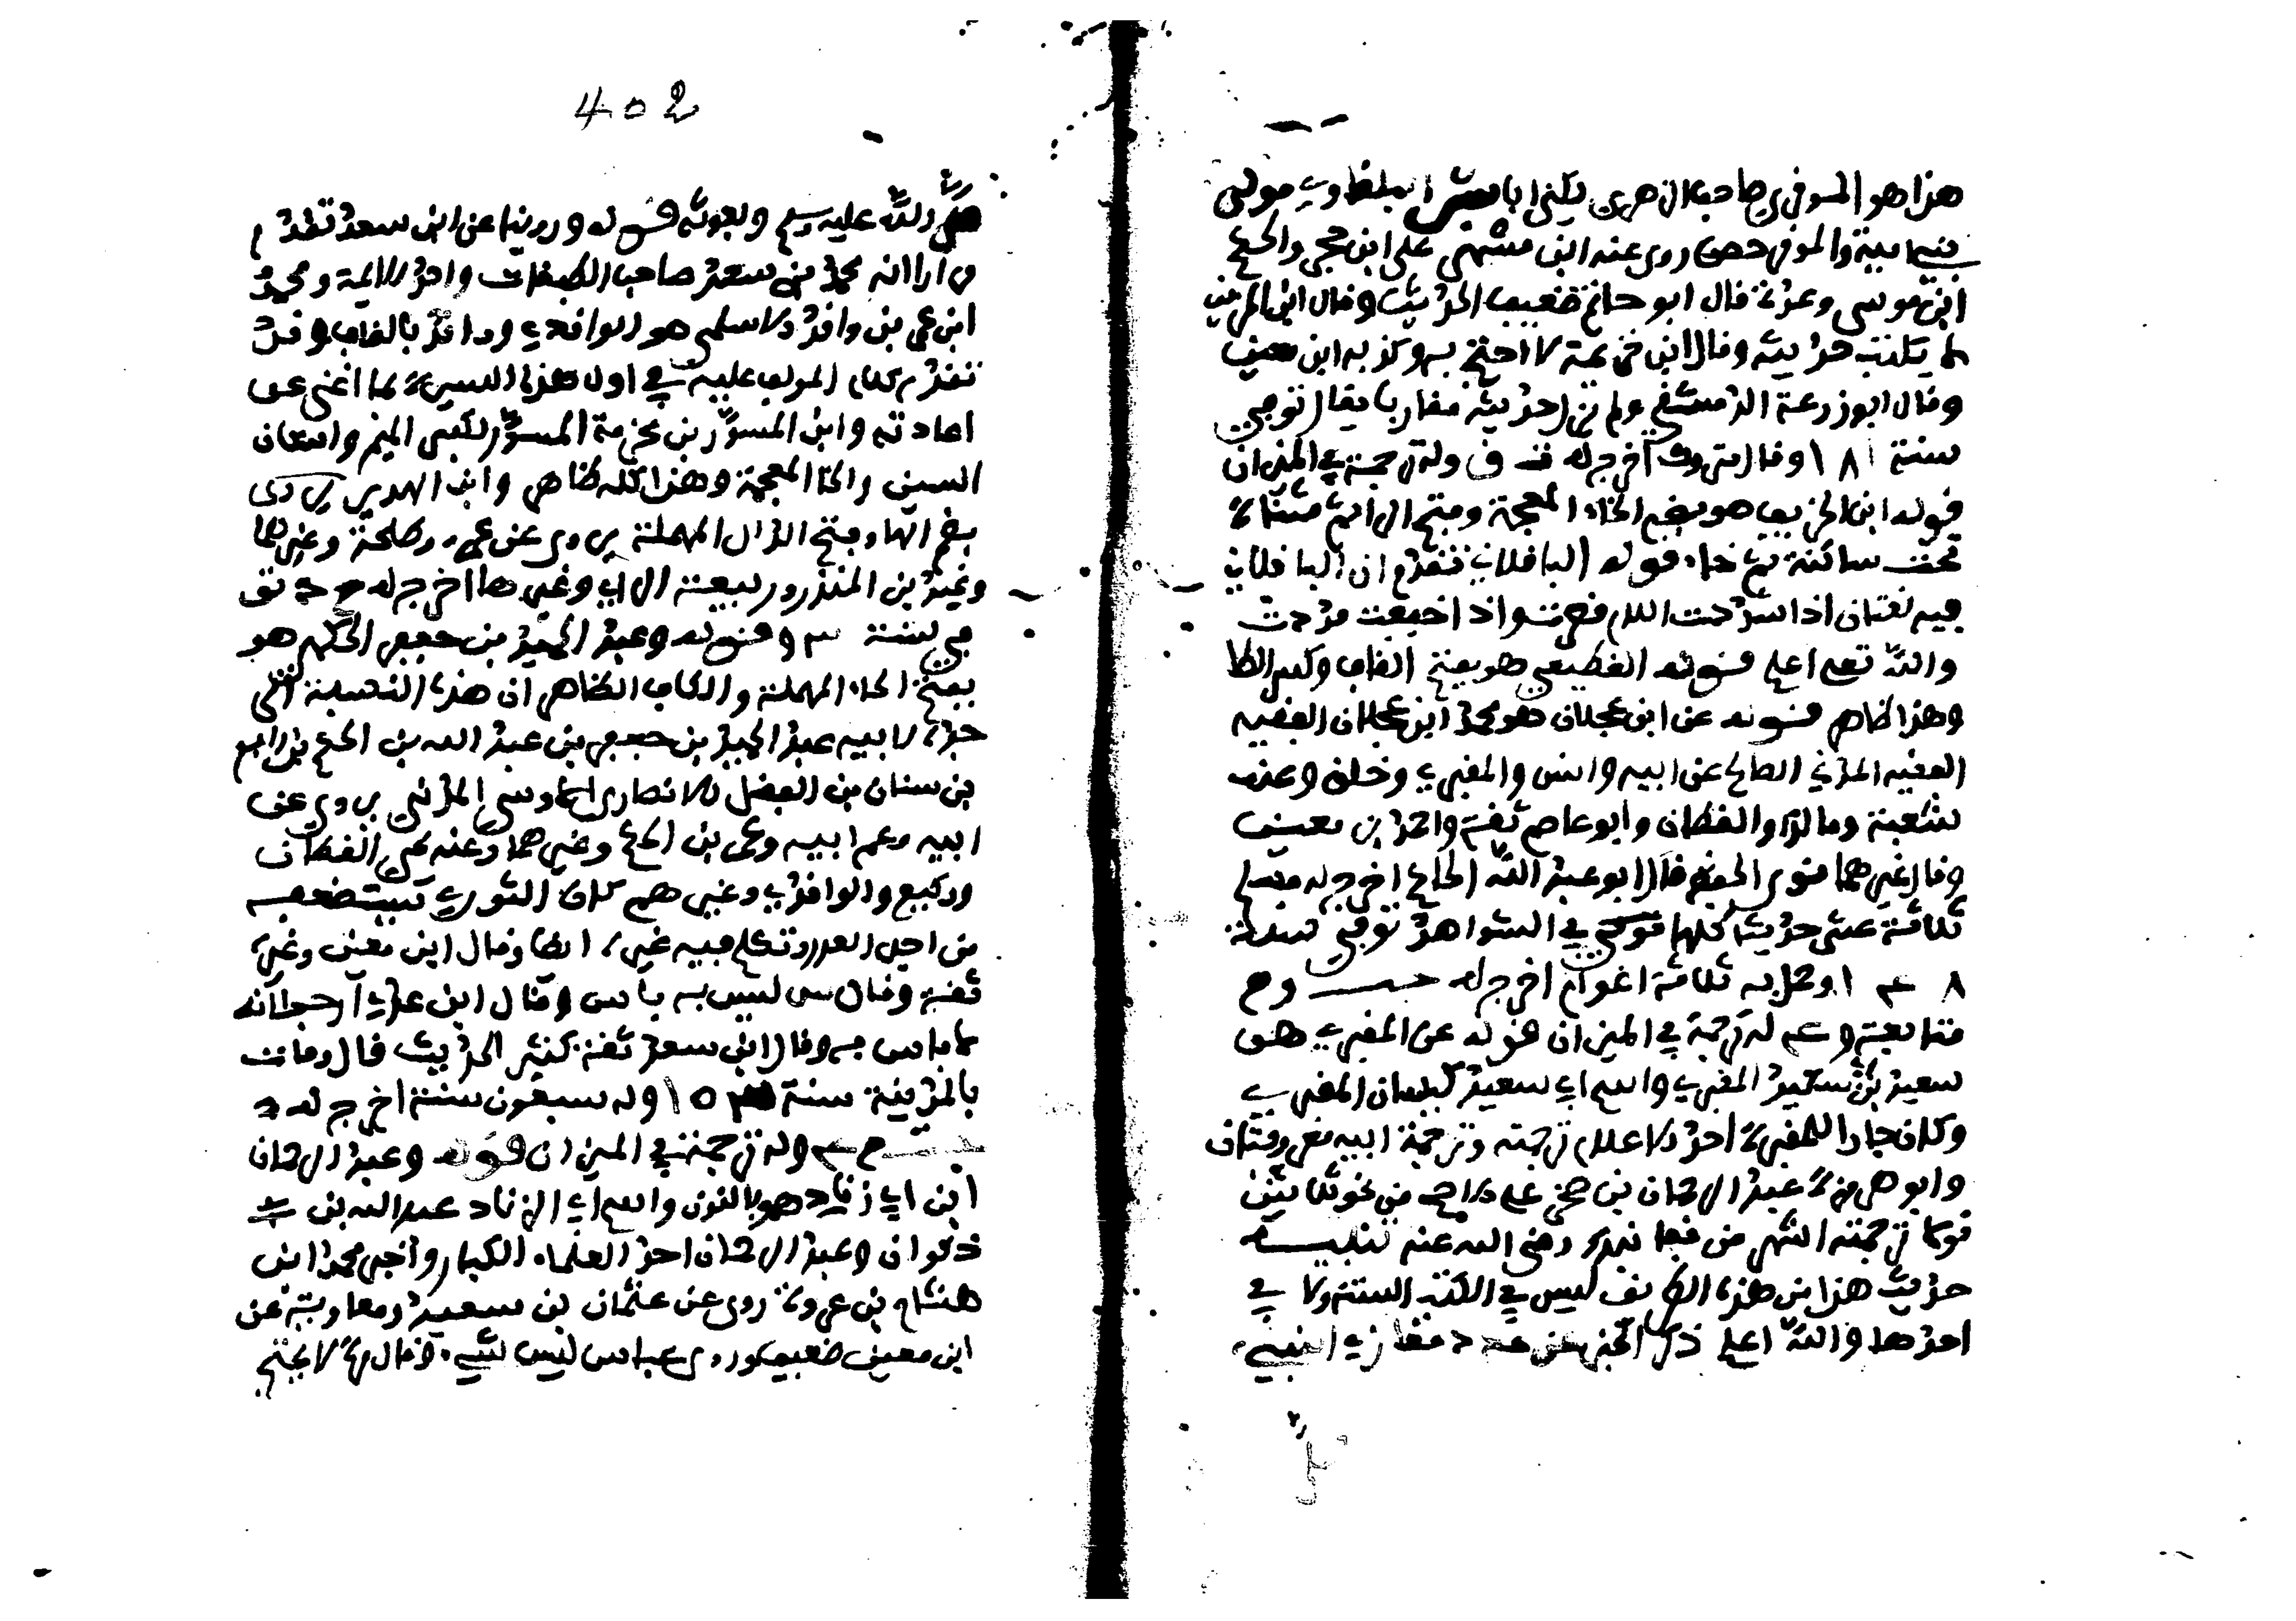 هذا هو الموقري صاحب الزهري يكنى ابا بشر البلقاوي مولى
بني امية والموقر حصن روى عنه ابن مسهر علي ابن حجر والحكم
ابن موسى وعدة قال ابو حاتم ضعيف الحديث وقال ابن المديني
لا يكتب حديثه وقال ابن خزيمة لا احتج به وكذبه ابن معين
وقال ابو زرعة الدمشقي لم يزل حديثه مقاربا يقال توفي
سنة ١٨١ وقال متروك اخرج له ت ق وله ترجمة في الميزان
قوله ابن الخريف هو بضم الخاء المعجمة وفتح الراء ثم مثناة
تحت ساكنة ثم فاء قوله الباقلاني تقدم ان الباقلاني
فيه لغتان اذا شددت اللام قصرت واذا خففت مددت
والله تعلى اعلم قوله القطيعي هو بفتح القاف وكسر الطا
وهذا ظاهر قوله عن ابن عجلان هو محمد ابن عجلان الفقيه
الفقيه المدني الصالح عن ابيه وانس والمقبري وخلق وعنه
شعبة ومالك والقطان وابو عاصم ثقة واحمد بن معين
وقال غيرهما سيء الحفظ قال ابو عبد الله الحاكم اخرج له مسلم
ثلاثة عشر حديثا كلها في الشواهد توفي سنة
١٤٨ وحمل به ثلاثة اعوام اخرج له خت وم
متابعة و ع له ترجمة في الميزان قوله عن المقبري هو
سعيد بن سعيد المقبري واسم ابي سعيد كيسان المقبري
وكان جارا للمقبرة احد الاعلام ترجمته وترجمة ابيه معروفتان
وابو هريرة عبد الرحمان بن صخر على الاصح من نحو ثلاثين
قولا ترجمته اشهر من قفا نبك رضي الله عنه تنبيه
حديث هذا من هذه الطريق ليس في الكتب الستة ولا في
احدها والله اعلم ذكر الخبر عن عدد مغازي النبيء
402
صلى الله عليه وسلم وبعوثه قوله وروينا عن ابن سعد تقدم
مرارا انه محمد بن سعد صاحب الطبقات واحد الايمة ومحمد
ابن عمر بن واقد الاسلمي هو الواقدي وواقد بالقاف وقد
تقدم كلام المولف عليه في اول هذه السيرة بما اغنى عن
اعادته وابن المسور بن مخرمة المسور بكسر الميم واسكان
السين والخا المعجمة وهذا كله ظاهر وابن الهدير
بضم الها وفتح الدال المهملة يروى عن عمر وطلحة وغيرهما
وغير بن المنذر وربيعة الراي وغيرهما اخرج له خ د توفي
في سنة ٩٣ قوله وعبد الحميد بن جعفر الحكمي هو
بفتح الحاء المهملة والكاف الظاهر ان هذه النسبة الى
جده لابيه عبد الحميد بن جعفر بن عبد الله بن الحكم بن رافع
بن سنان من الفضل الانصاري الاوسي المدني يروى عن
ابيه وعم ابيه وعمر بن الحكم وغيرهما وعنه يحيى القطان
ووكيع والواقدي وغيرهم كان الثوري يضعفه
من اجل القدر وتكلم فيه غيره ايضا وقال ابن معين وغيره
ثقة وقال س ليس به باس وقال ابن عدي ارجو انه
لا باس به وقال ابن سعد ثقة كثير الحديث قال ومات
بالمدينة سنة ١٥٣ وله سبعون سنة اخرج له
خت م ع وله ترجمة في الميزان قوله وعبد الرحمان
ابن ابي زناد هو بالنون واسم ابي الزناد عبد الله بن
ذكوان وعبد الرحمان احد العلماء الكبار واخبر محمد ابن
هشام بن عروة روى عن عثمان بن سعيد ومعاوية عن
ابن معين ضعيف وروى عباس ليس بشيء وقال مرة لا يحتج